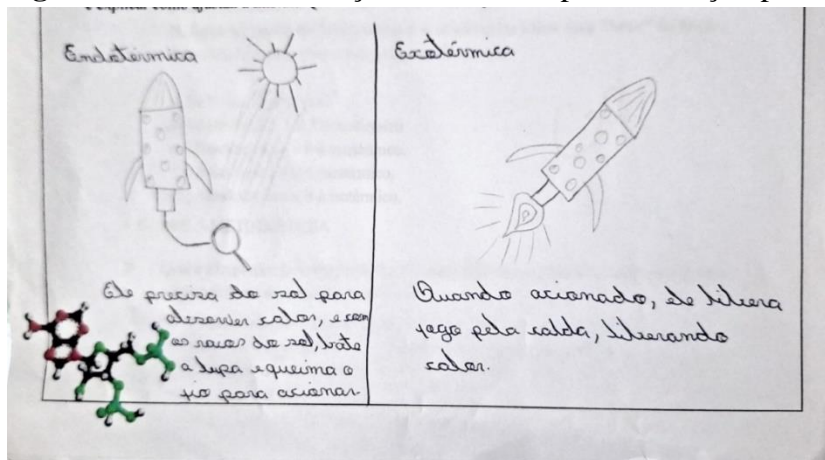 Endotérmica
Ele precisa do sol para
absorver calor, e com
os raios do sol, bate
a lupa e queima o
fio para acionar.
Exotérmica
Quando acionado, ele libera
fogo pela calda, liberando
calor.